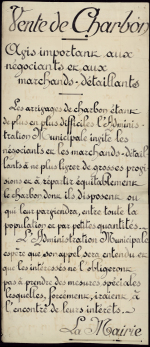 Vente de Charbon
Avis important aux
négociants et aux
marchands-détaillants
Les arrivages de charbon étant
de plus en plus difficiles l'Adminis-
tration Municipale invite les
négociants et les marchands-détail-
lants à ne plus livrer de grosses provi-
sions et à répartir équitablement
le charbon dont ils disposent ou
qui leur parviendra, entre toute la
population et par petites quantités.
L'Administration Municipale
espère que son appel sera entendu et
que les intéressés ne l'obligeront
pas à prendre des mesures spéciales
lesquelles, forcément, iraient à
l'encontre de leurs intérêts.
La Mairie.